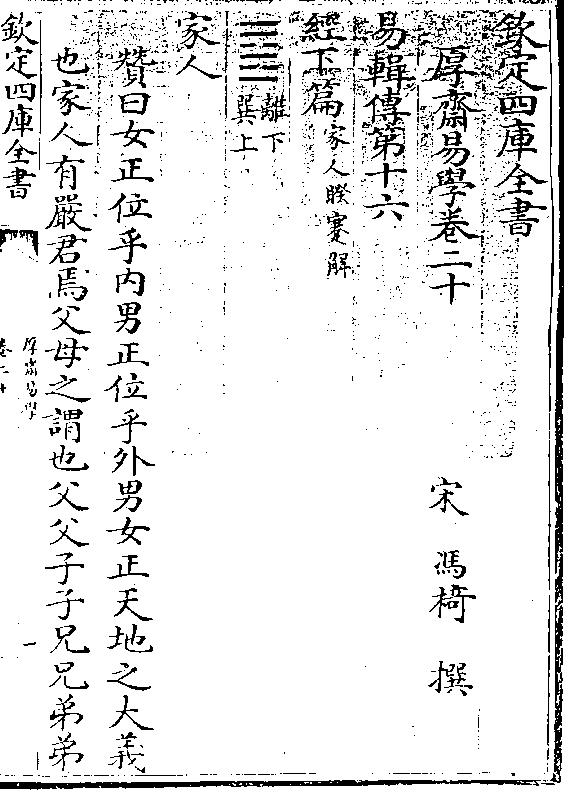 欽定四庫全書
厚齋易學卷二十
宋 馮椅 撰
易輯傳第十六
經下篇家人睽蹇解
離下
巽上
家人
贊曰女正位乎内男正位乎外男女正天地之大義
也家人有嚴君焉父母之謂也父父子子兄兄弟弟
欽定四庫全書
厚齋易學
卷二十
一